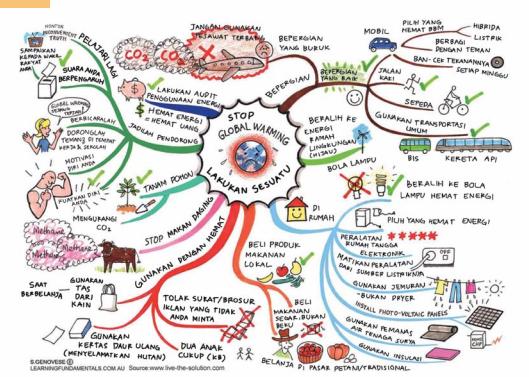 STOP
GLOBAL WARMING
LAKUKAN SESUATU
NONTON
INCONVENIENT
TRUTH
PELAJARI LAGI
SAMPAIKAN
KEPADA WAKIL
RAKYAT
ANDA
SUARA ANDA
BERPENGARUH
GLOBAL WARMING
BERBICARALAH
DORONGLAH
TEMAN DI TEMPAT
KERJA SEKOLAH
MOTIVASI
DIRI ANDA
KUATKAN DIRI
JADILAH PENDORONG
LAKUKAN AUDIT
PENGGUNAAN ENERGI
HEMAT ENERGI
= HEMAT UANG
TANAM POHON
MENGURANGI
CO2
STOP MAKAN DAGING
Methane
Methane
Methane
GUNAKAN DENGAN HEMAT
SAAT
BERBELANJA
GUNAKAN
TAS
DARI
KAIN
TOLAK SURAT/BROSUR
IKLAN YANG TIDAK
ANDA MINTA
GUNAKAN
KERTAS DAUR ULANG
(MENYELAMATKAN HUTAN)
DUA ANAK
CUKUP (KB)
BELI PRODUK
MAKANAN
LOKAL
BELI
MAKANAN
SEGAR, BUKAN
BEKU
BELANJA DI PASAR PETANI/TRADISIONAL
JANGAN GUNAKAN
PESAWAT TERBANG
CO2
CO2
BEPERGIAN
YANG BURUK
BEPERGIAN
BEPERGIAN
YANG BAIK
MOBIL
PILIH YANG
HEMAT BBM
HIBRIDA
LISTRIK
BERBAGI
DENGAN TEMAN
BAN - CEK TEKANANNYA
SETIAP MINGGU
JALAN
KAKI
SEPEDA
GUNAKAN TRANSPORTASI
UMUM
BIS
KERETA API
BERALIH KE
ENERGI
RAMAH
LINGKUNGAN
(HIJAU)
BOLA LAMPU
BERALIH KE BOLA
LAMPU HEMAT ENERGI
DI
RUMAH
PILIH YANG HEMAT ENERGI
PERALATAN
RUMAH TANGGA
ELEKTRONIK
MATIKAN PERALATAN
DARI SUMBER LISTRIKNYA
OFF
GUNAKAN JEMURAN
BUKAN DRYER
INSTALL PHOTO-VOLTAIC PANELS
GUNAKAN PEMANAS
AIR TENAGA SURYA
GUNAKAN INSULASI
S.GENOVESE ©
LEARNINGFUNDAMENTALS.COM.AU Source:www.live-the-solution.com